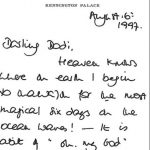 KENSINGTON PALACE
August. 6:
1997.
Darling Dodi,
Heaven knows
where on earth I begin
to thank you for the most
magical six days on the
ocean waves! — It is
a bit of "oh, my God"